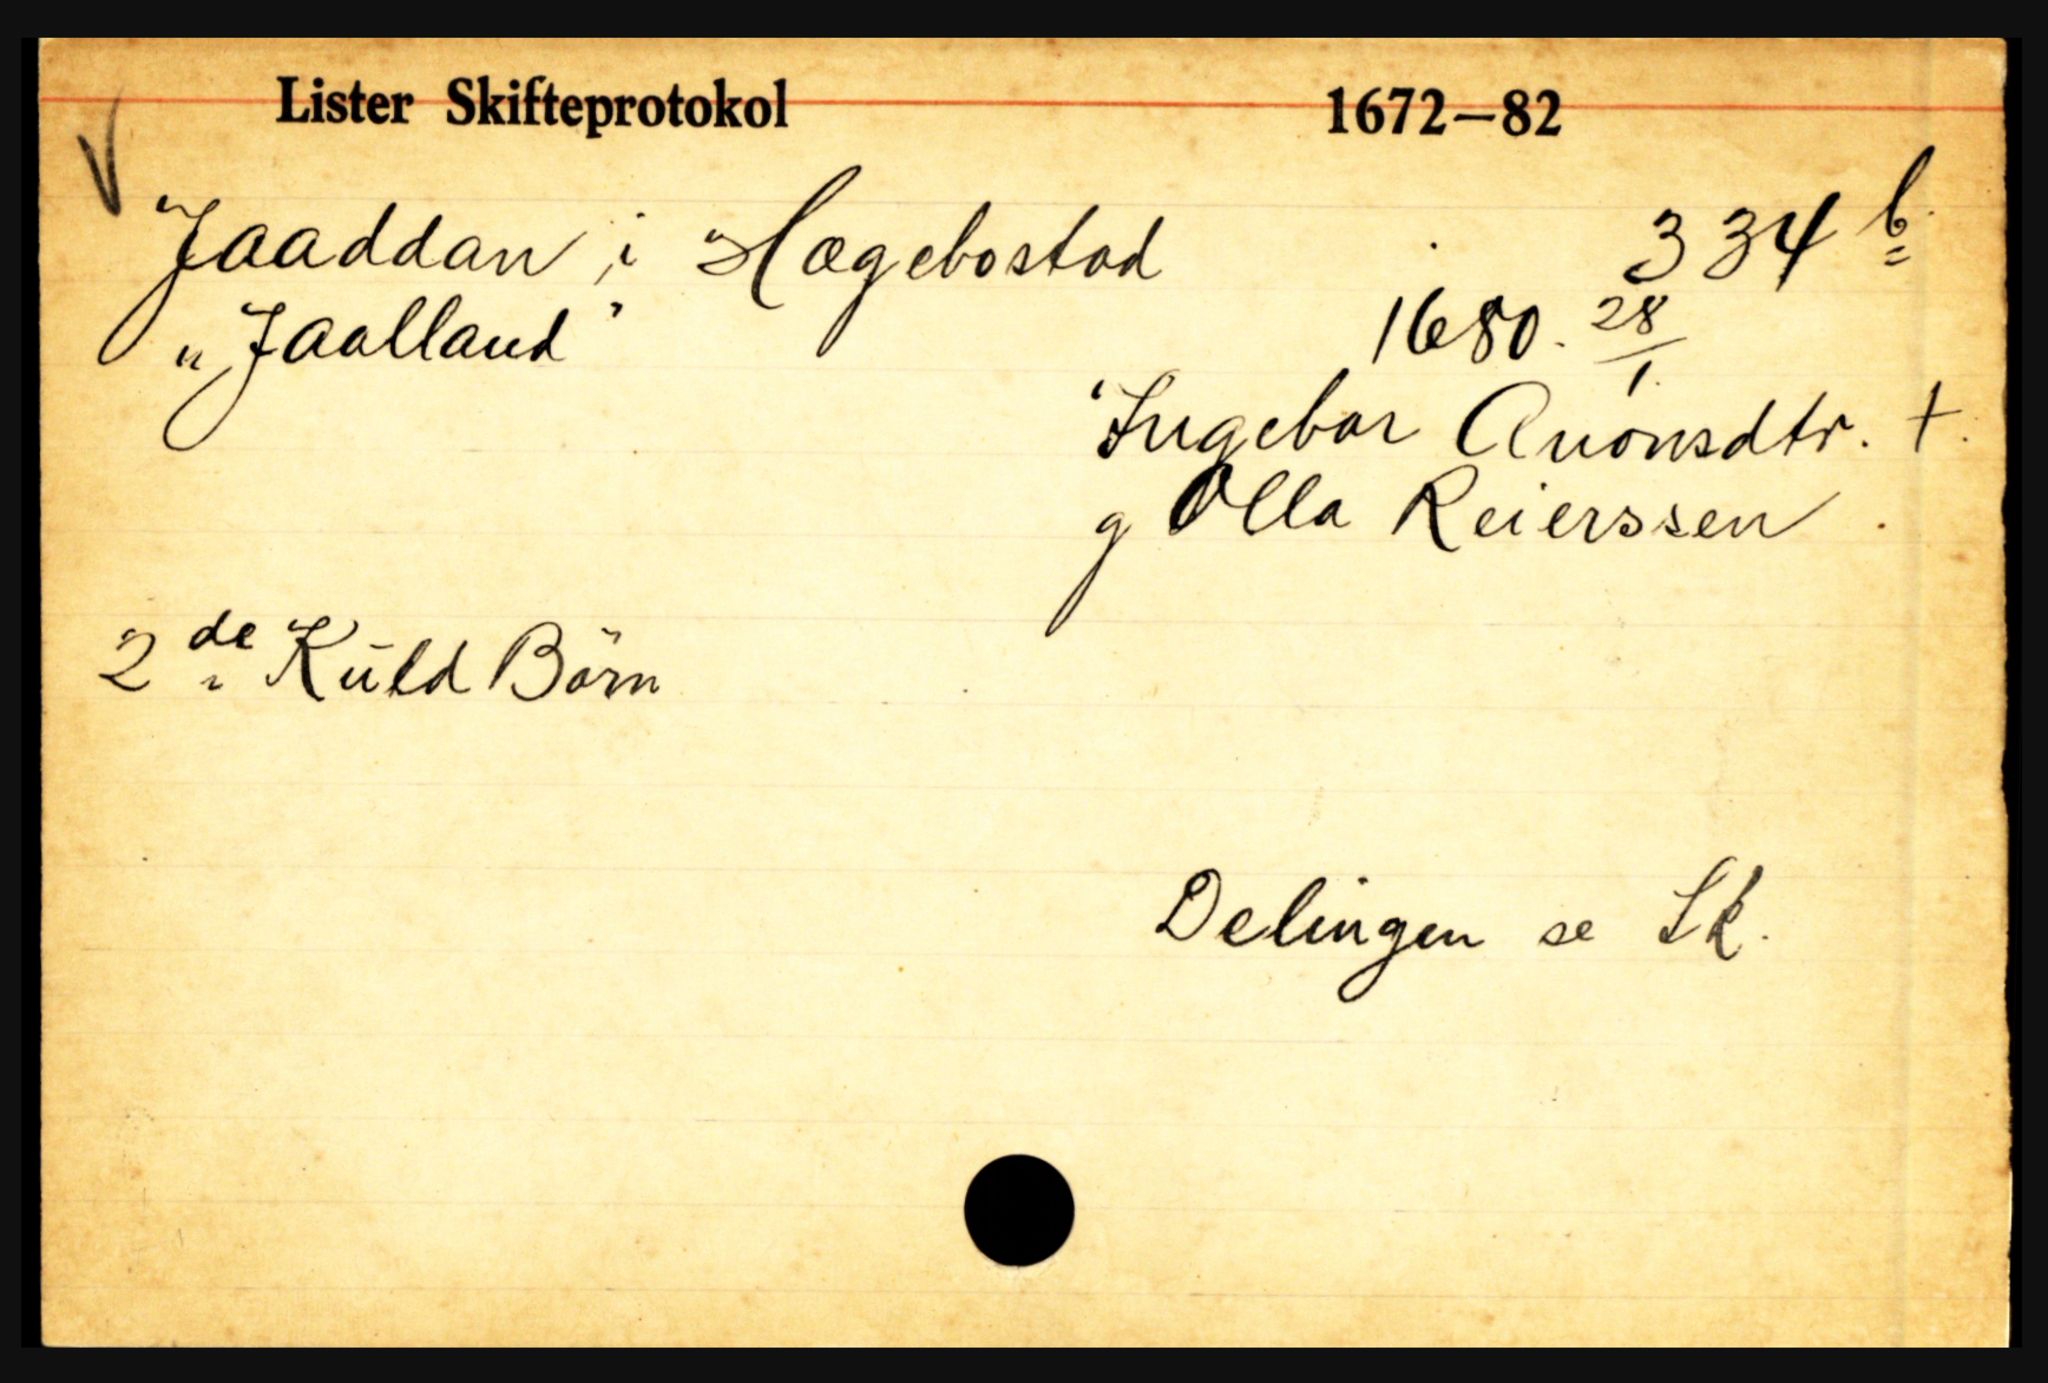 Lister Skifteprotokol 1672—82
V
Jaaddan i Hægebostad 334 b
„Jaalland" 1680. 28/1.
Ingebor Anonsdtr. †.
g Olla Reierssen.
2de Kuld Börn
Delingen se Sk.